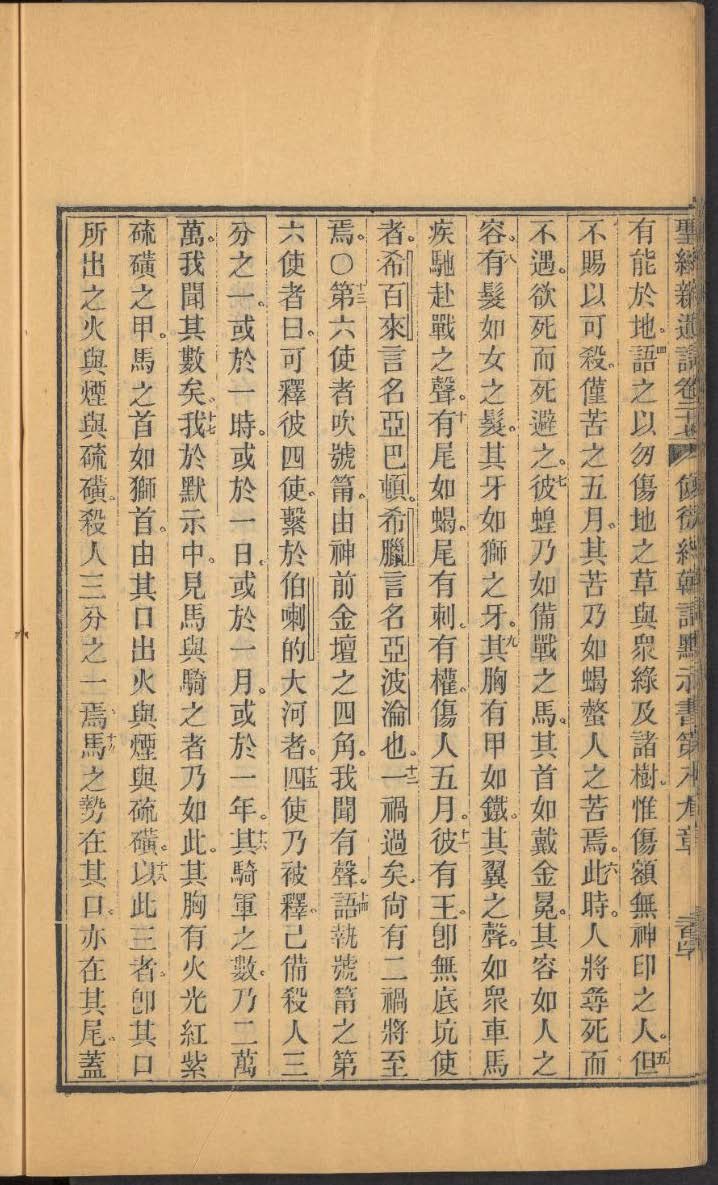 聖經新遺詔卷二十七 依徾經韓詔默示書第八九章
有能於地。四語之以勿傷地之草與衆綠及諸樹。惟傷額無神印之人。五但
不賜以可殺。僅苦之五月。其苦乃如蝎螫人之苦焉。六此時。人將尋死而
不遇。欲死而死避之。七彼蝗乃如備戰之馬。其首如戴金冕。其容如人之
容。八有髮如女之髮。其牙如獅之牙。九其胸有甲如鐵。其翼之聲。如衆車馬
疾馳赴戰之聲。十有尾如蝎。尾有刺。有權。傷人五月。十一彼有王。卽無底坑使
者。希百來言名亞巴頓。希臘言名亞波淪也。十二一禍過矣。尙有二禍將至
焉。〇十三第六使者吹號筩。由神前金壇之四角。我聞有聲。十四語執號筩之第
六使者曰。可釋彼四使。繫於伯喇的大河者。十五四使乃被釋。己備殺人三
分之一。或於一時。或於一日。或於一月。或於一年。十六其騎軍之數。乃二萬
萬。我聞其數矣。十七我於默示中。見馬與騎之者乃如此。其胸有火光紅紫
硫磺之甲。馬之首如獅首。由其口出火與煙與硫磺。十八以此三者。卽其口
所出之火與煙與硫磺。殺人三分之一焉。十九馬之勢在其口。亦在其尾。蓋